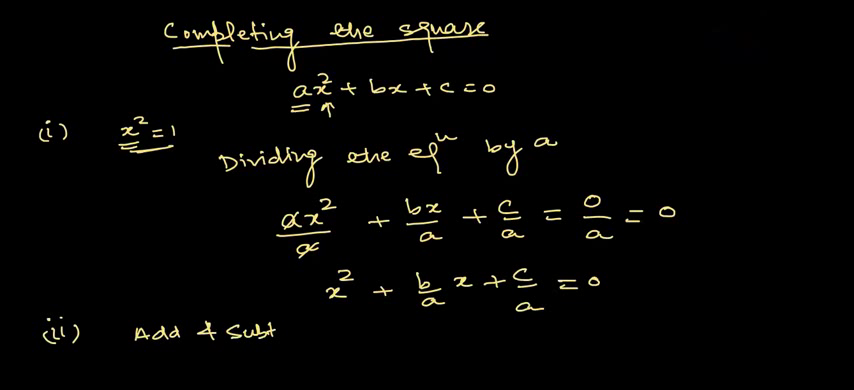 Completing the square
ax² + bx + c = 0
(i) x² = 1
Dividing the eqⁿ by a
ax²/a + bx/a + c/a = 0/a = 0
x² + b/a x + c/a = 0
(ii) Add & Subt